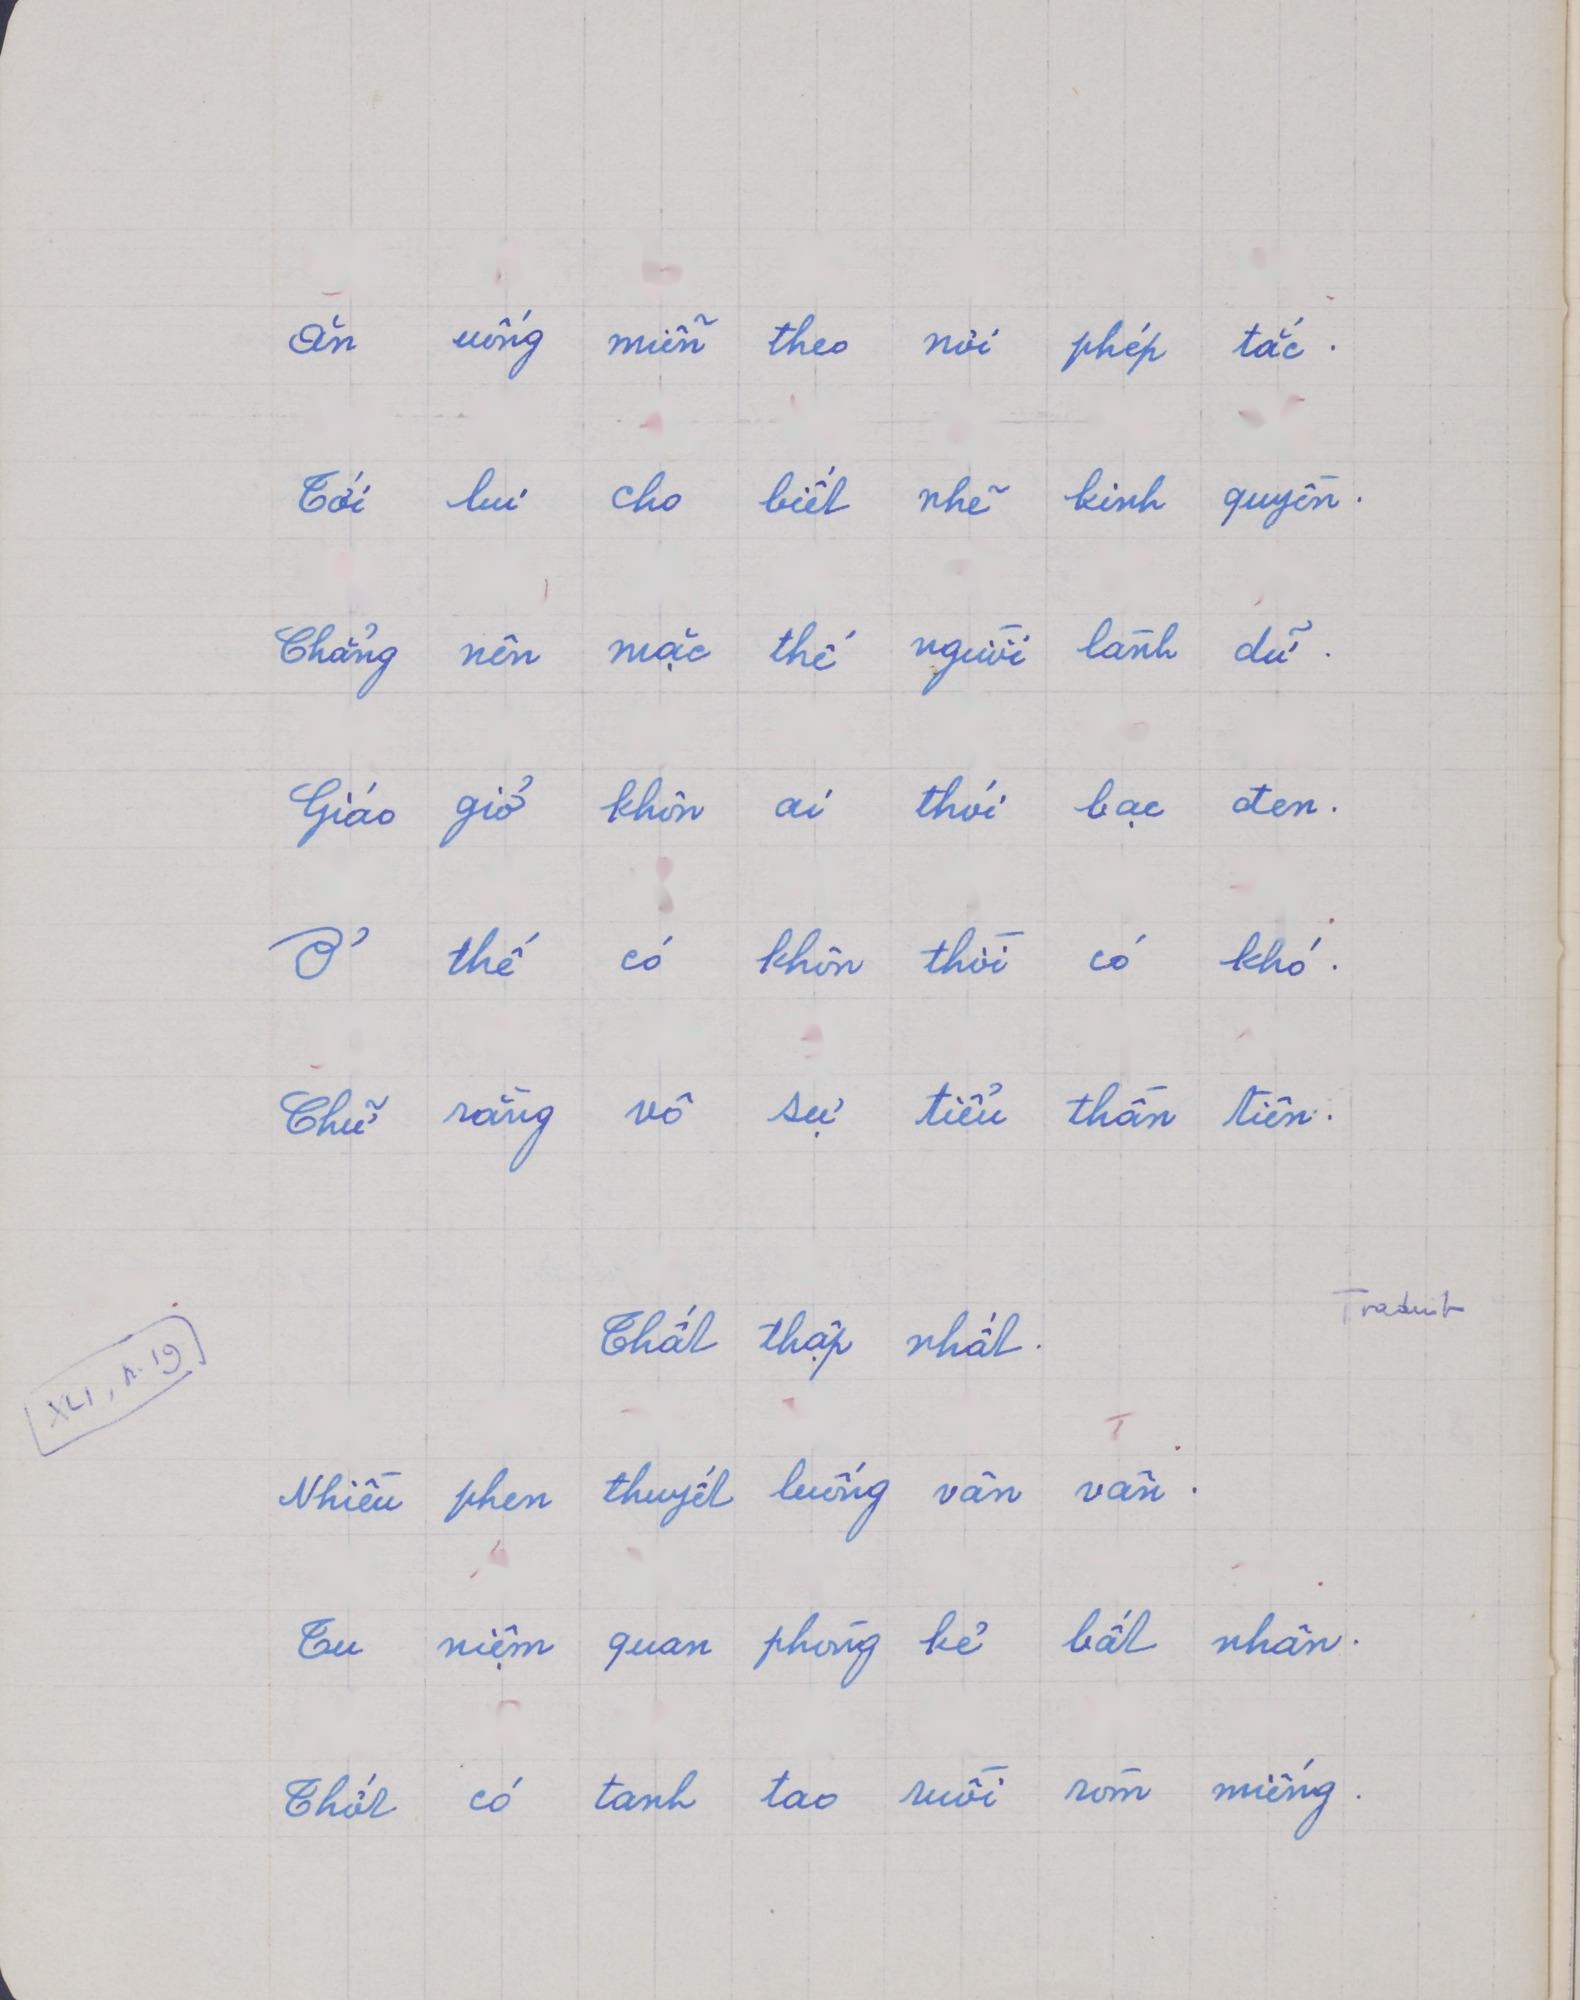 Ăn uống miễn theo nơi phép tắc.
Tới lui cho biết nhẽ kinh quyền.
Chẳng nên mặc thế người lành dữ.
Giáo giở khôn ai thói bạc đen.
Ở thế có khôn thời có khó.
Chữ rằng vô sự tiểu thần tiên.
Traduit
Thất thập nhất.
XLI, n. 19
Nhiều phen thuyết luống vân vân.
Tu niệm quan phòng kẻ bất nhân.
Thớt có tanh tao ruồi ròm miếng.